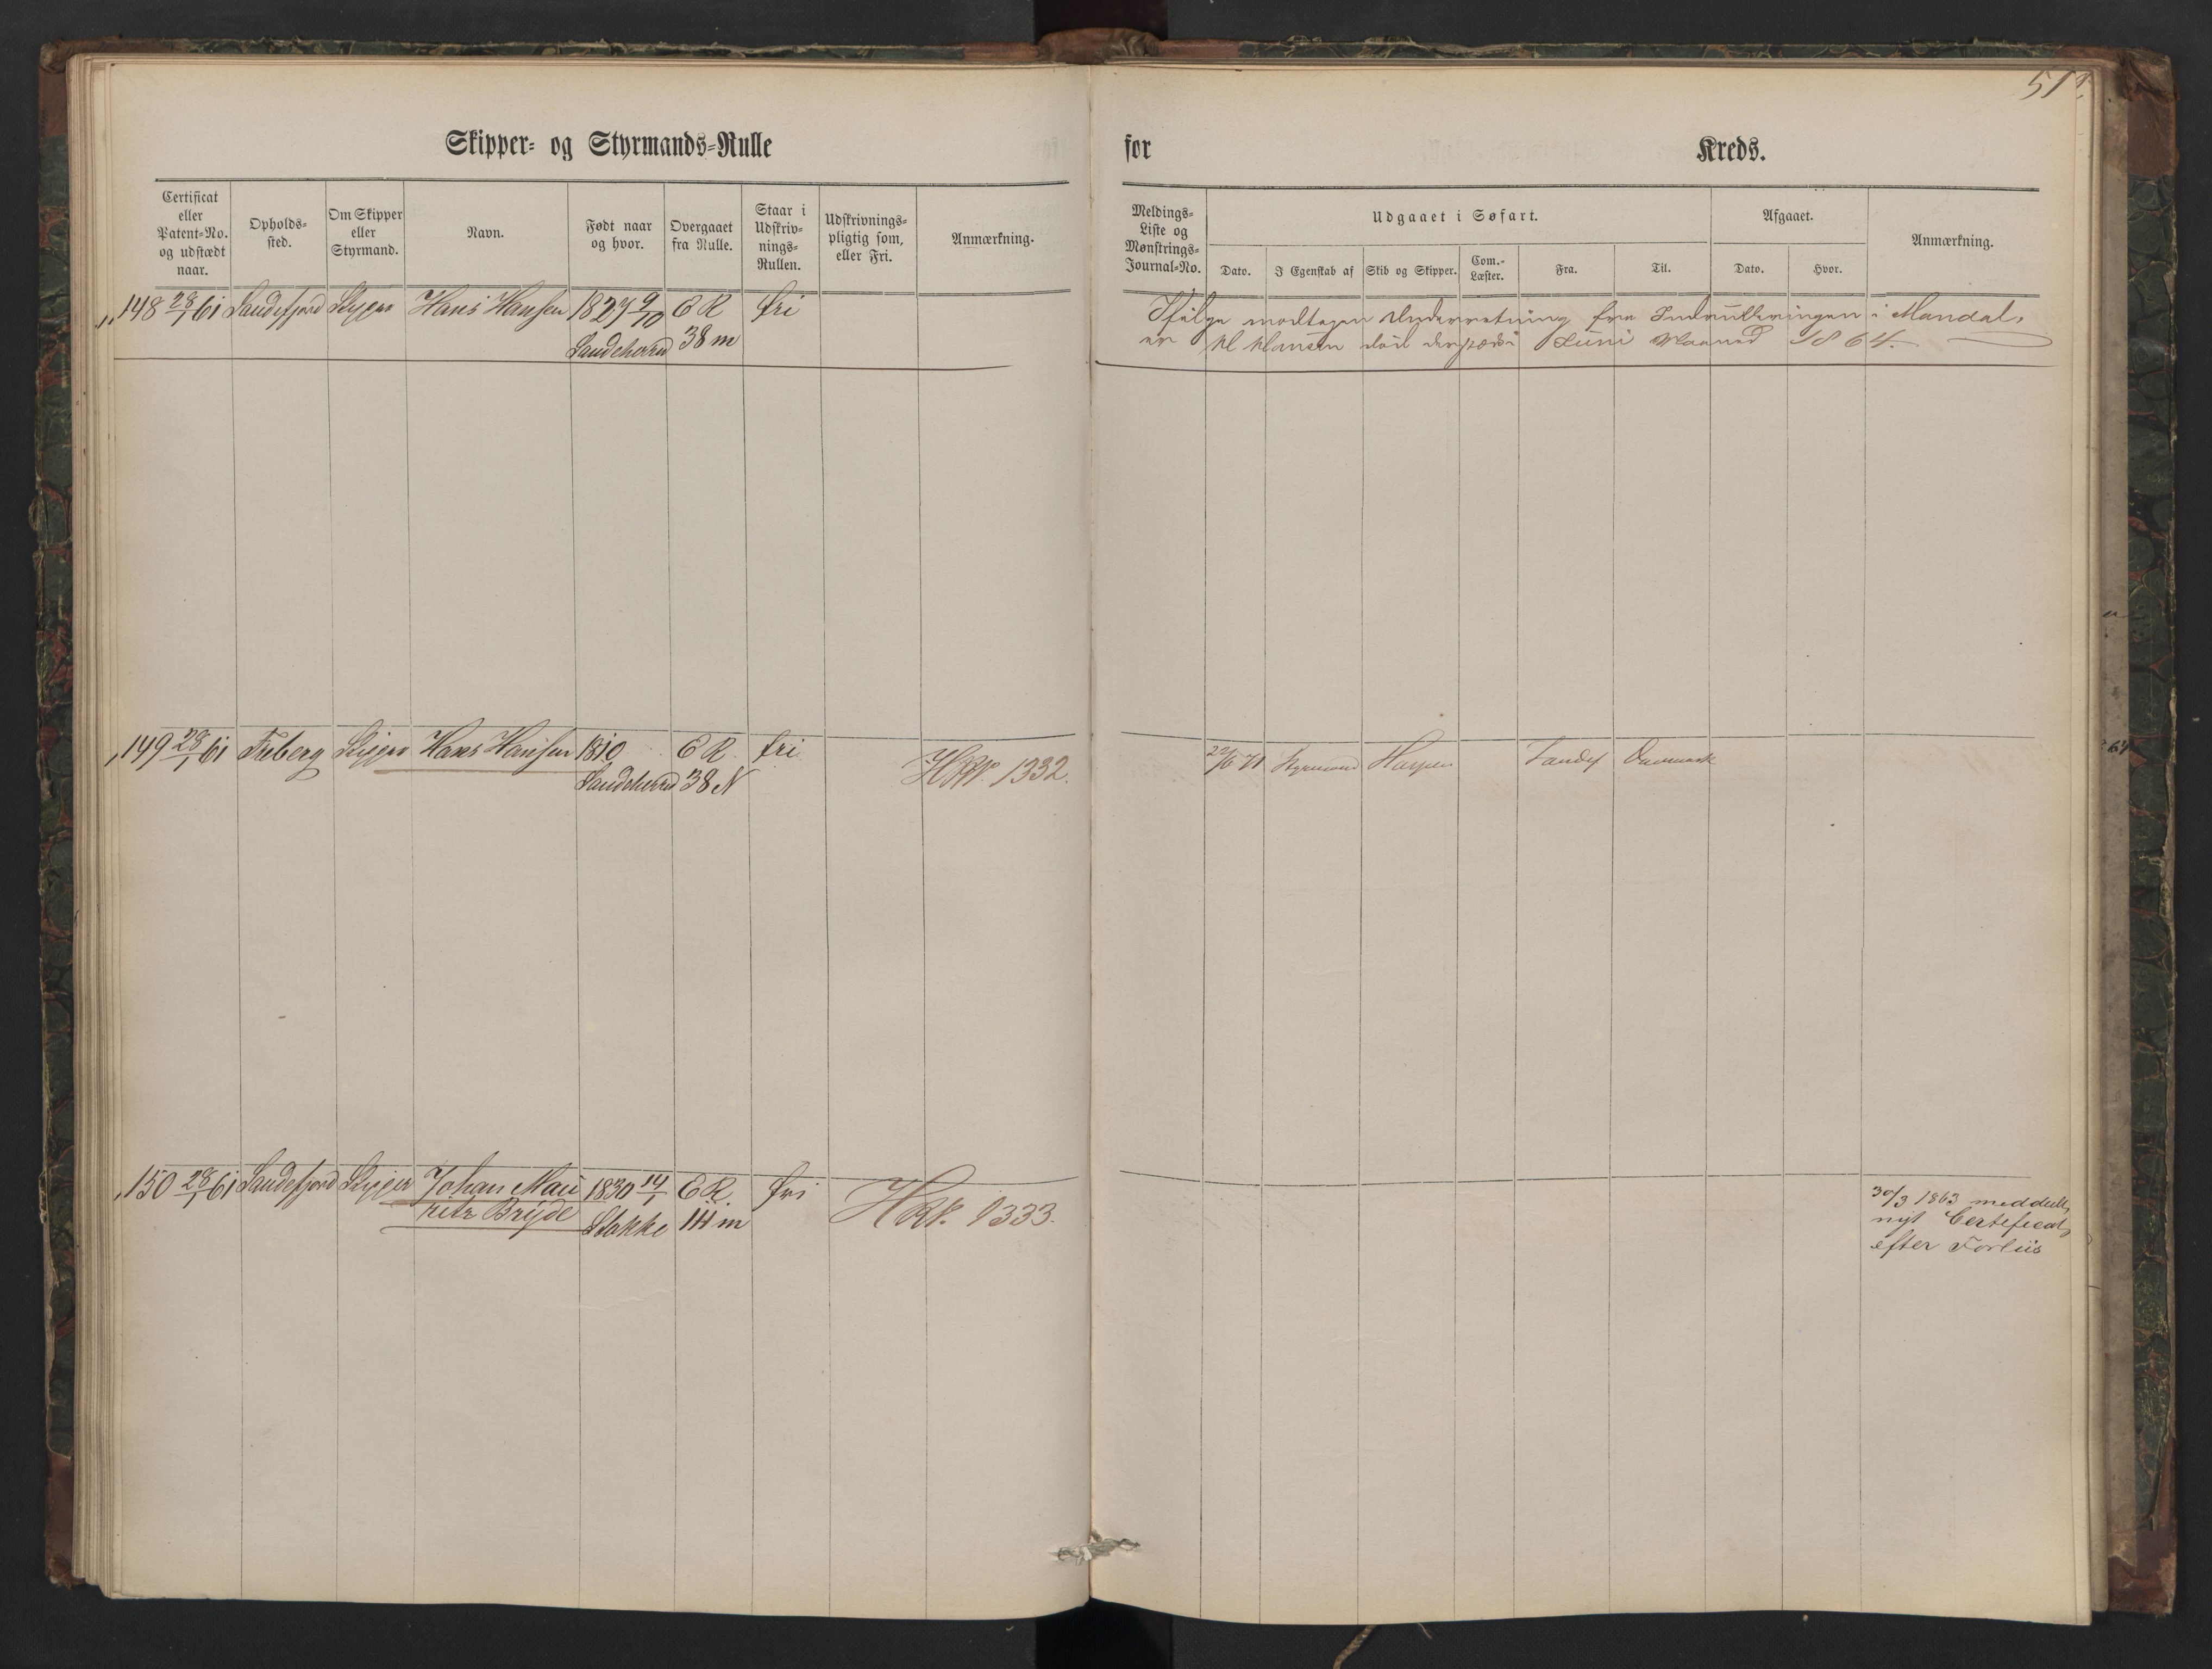 51
Skipper- og Styrmands-Rulle
for
Kreds.
Certificat eller Patent-No. og udstædt naar.
Opholds-sted.
Om Skipper eller Styrmand.
Navn.
Født naar og hvor.
Overgaaet fra Rulle.
Staar i Udskriv-nings-Rullen.
Udskrivnings-pligtig som, eller Fri.
Anmærkning.
Meldings-Liste og Mønstrings-Journal-No.
Udgaaet i Søfart.
Dato.
I Egenskab af
Skib og Skipper.
Com.-Læster.
Fra.
Til.
Afgaaet.
Dato.
Hvor.
Anmærkning.
148 28/1 61 Sandefjord Skipper Hans Hansen 1827 9/10 E R fri
Sandeherred 38 m
Ifølge modtagen Underretning fra Indrulleringen i Mandal,
er H Hansen død i Juni Maaned 1864.
149 28/1 61 Freberg Skipper Hans Hansen 1810 E R fri
Sandeherred 38 N
1332.
22/6 71 Styrmand Sandef Danmark
150 28/1 61 Sandefjord Skipper Johan Mau 1830 14/1 E R fri
ritz Bryde Stokke 114 m
1333.
30/3 1863 meddelt
nyt Certeficat
efter Forliis